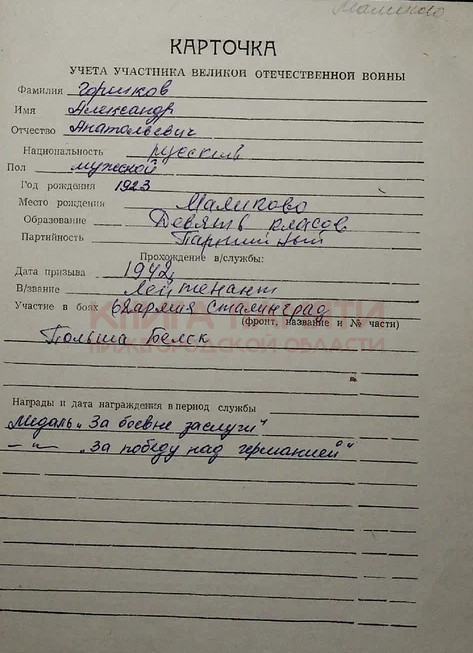 Маликово
КАРТОЧКА
УЧЕТА УЧАСТНИКА ВЕЛИКОЙ ОТЕЧЕСТВЕННОЙ ВОЙНЫ
Фамилия Горшков
Имя Александр
Отчество Анатольевич
Национальность русский
Пол мужской
Год рождения 1923
Место рождения Маликово
Образование Девять класов
Партийность Партийный
Прохождение в/службы:
Дата призыва 1942
В/звание Лейтенант
Участие в боях 62армия Сталинград
(фронт, название и № части)
КНИГА ПАМЯТИ
НИЖЕГОРОДСКОЙ ОБЛАСТИ
Польша Белск
Награды и дата награждения в период службы
Медаль „За боевые заслуги"
—"— „За победу над германией"